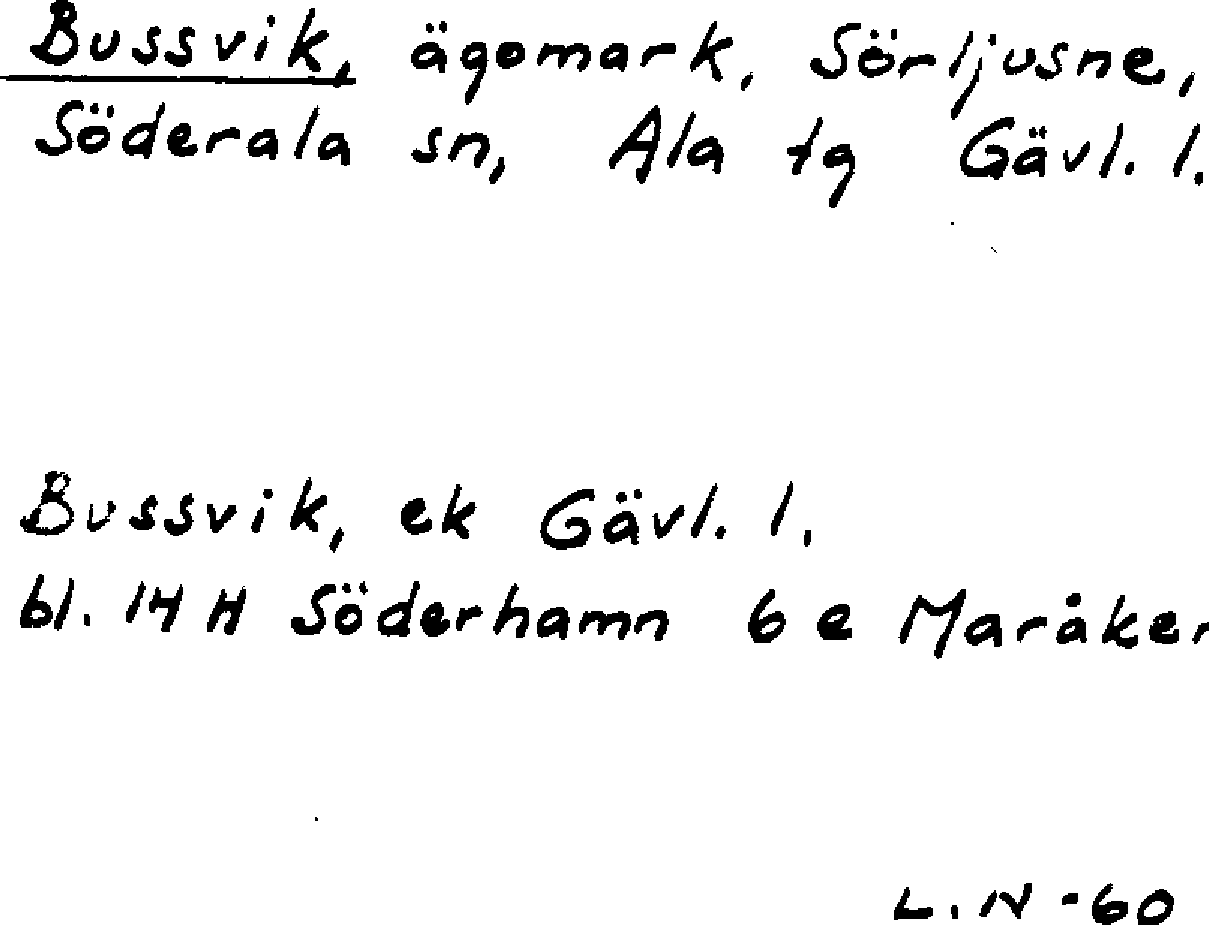 Bussvik, ägomark, Sörljusne,
Söderala sn, Ala tg Gävl. l.
Bussvik, ek Gävl. l.
bl. 14 H Söderhamn 6 e Maråker
L.N -60